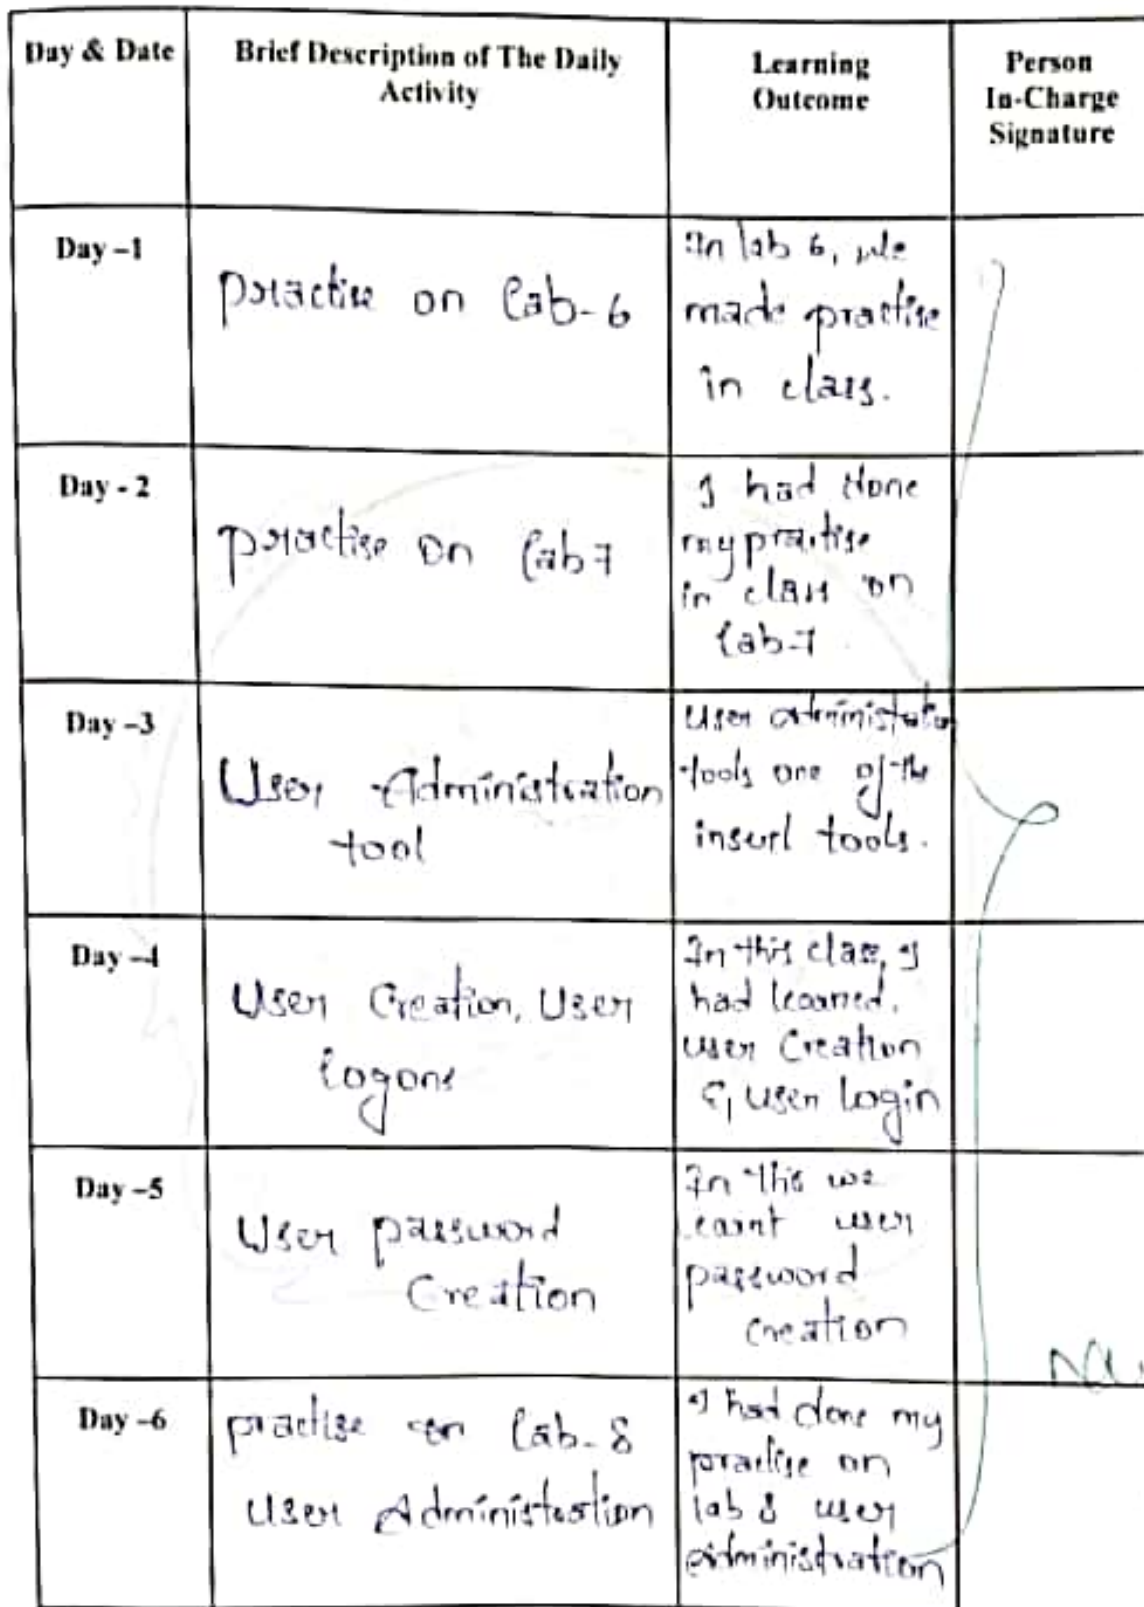 Day & Date
Brief Description of The Daily
Activity
Learning
Outcome
Person
In-Charge
Signature
Day –1
practise on lab-6
In lab 6, we
made practise
in class.
Day - 2
practise on lab 7
I had done
my practise
in class on
lab-7.
Day –3
User Administration
tool
User administrator
tools one of the
tools.
Day –4
User Creation, User
logons
In this class, I
had learned,
user Creation
& user login
Day –5
User password
Creation
In this we
learnt user
password
creation
Day –6
practise on lab-8
User Administration
I had done my
practise on
lab 8 user
administration